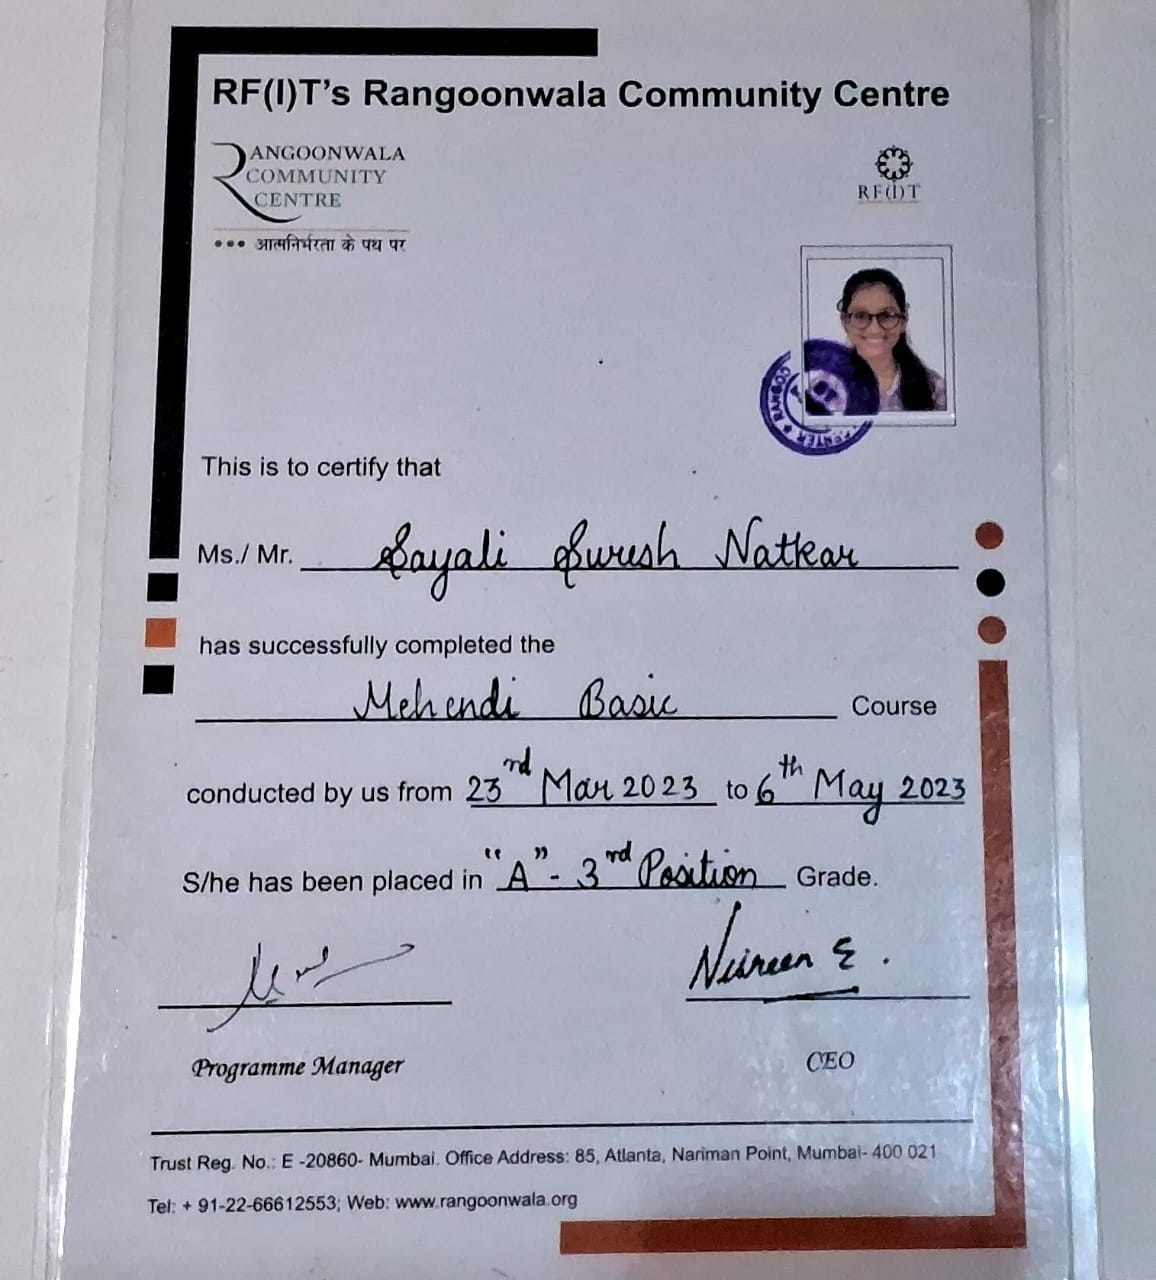 RF(I)T's Rangoonwala Community Centre
RANGOONWALA
COMMUNITY
CENTRE
आत्मनिर्भरता के पथ पर
RF(I)T
This is to certify that
Ms./ Mr. Sayali Suresh Natkar
has successfully completed the
Mehendi Basic Course
conducted by us from 23rd Mar 2023 to 6th May 2023
S/he has been placed in "A" - 3rd Position Grade.
Programme Manager
CEO
Trust Reg. No.: E -20860- Mumbai. Office Address: 85, Atlanta, Nariman Point, Mumbai- 400 021
Tel: + 91-22-66612553; Web: www.rangoonwala.org